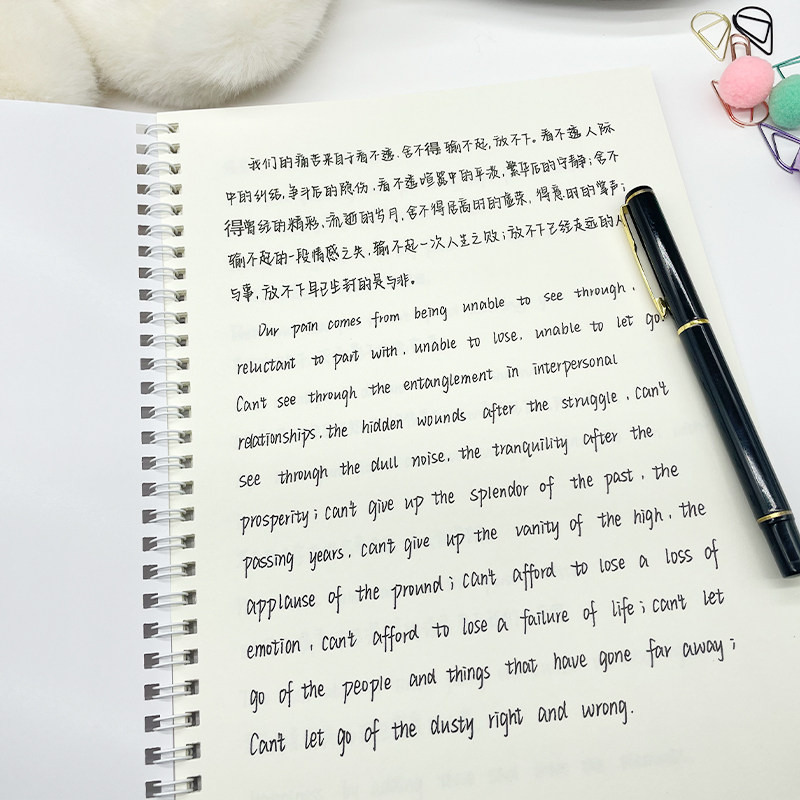 我们的痛苦来自于看不透,舍不得,输不起,放不下。看不透人际
中的纠结,争斗后的隐伤,看不透喧嚣中的平淡,繁华后的宁静;舍不
得曾经的精彩,流逝的岁月,舍不得居高时的虚荣,得意时的掌声;
输不起的一段情感之失,输不起一次人生之败;放不下已经走远的人
与事,放不下早已尘封的是与非。
Our pain comes from being unable to see through,
reluctant to part with, unable to lose, unable to let go.
Can't see through the entanglement in interpersonal
relationships, the hidden wounds after the struggle, can't
see through the dull noise, the tranquility after the
prosperity; can't give up the splendor of the past, the
passing years, can't give up the vanity of the high, the
applause of the pround; can't afford to lose a loss of
emotion, can't afford to lose a failure of life; can't let
go of the people and things that have gone far away;
Can't let go of the dusty right and wrong.